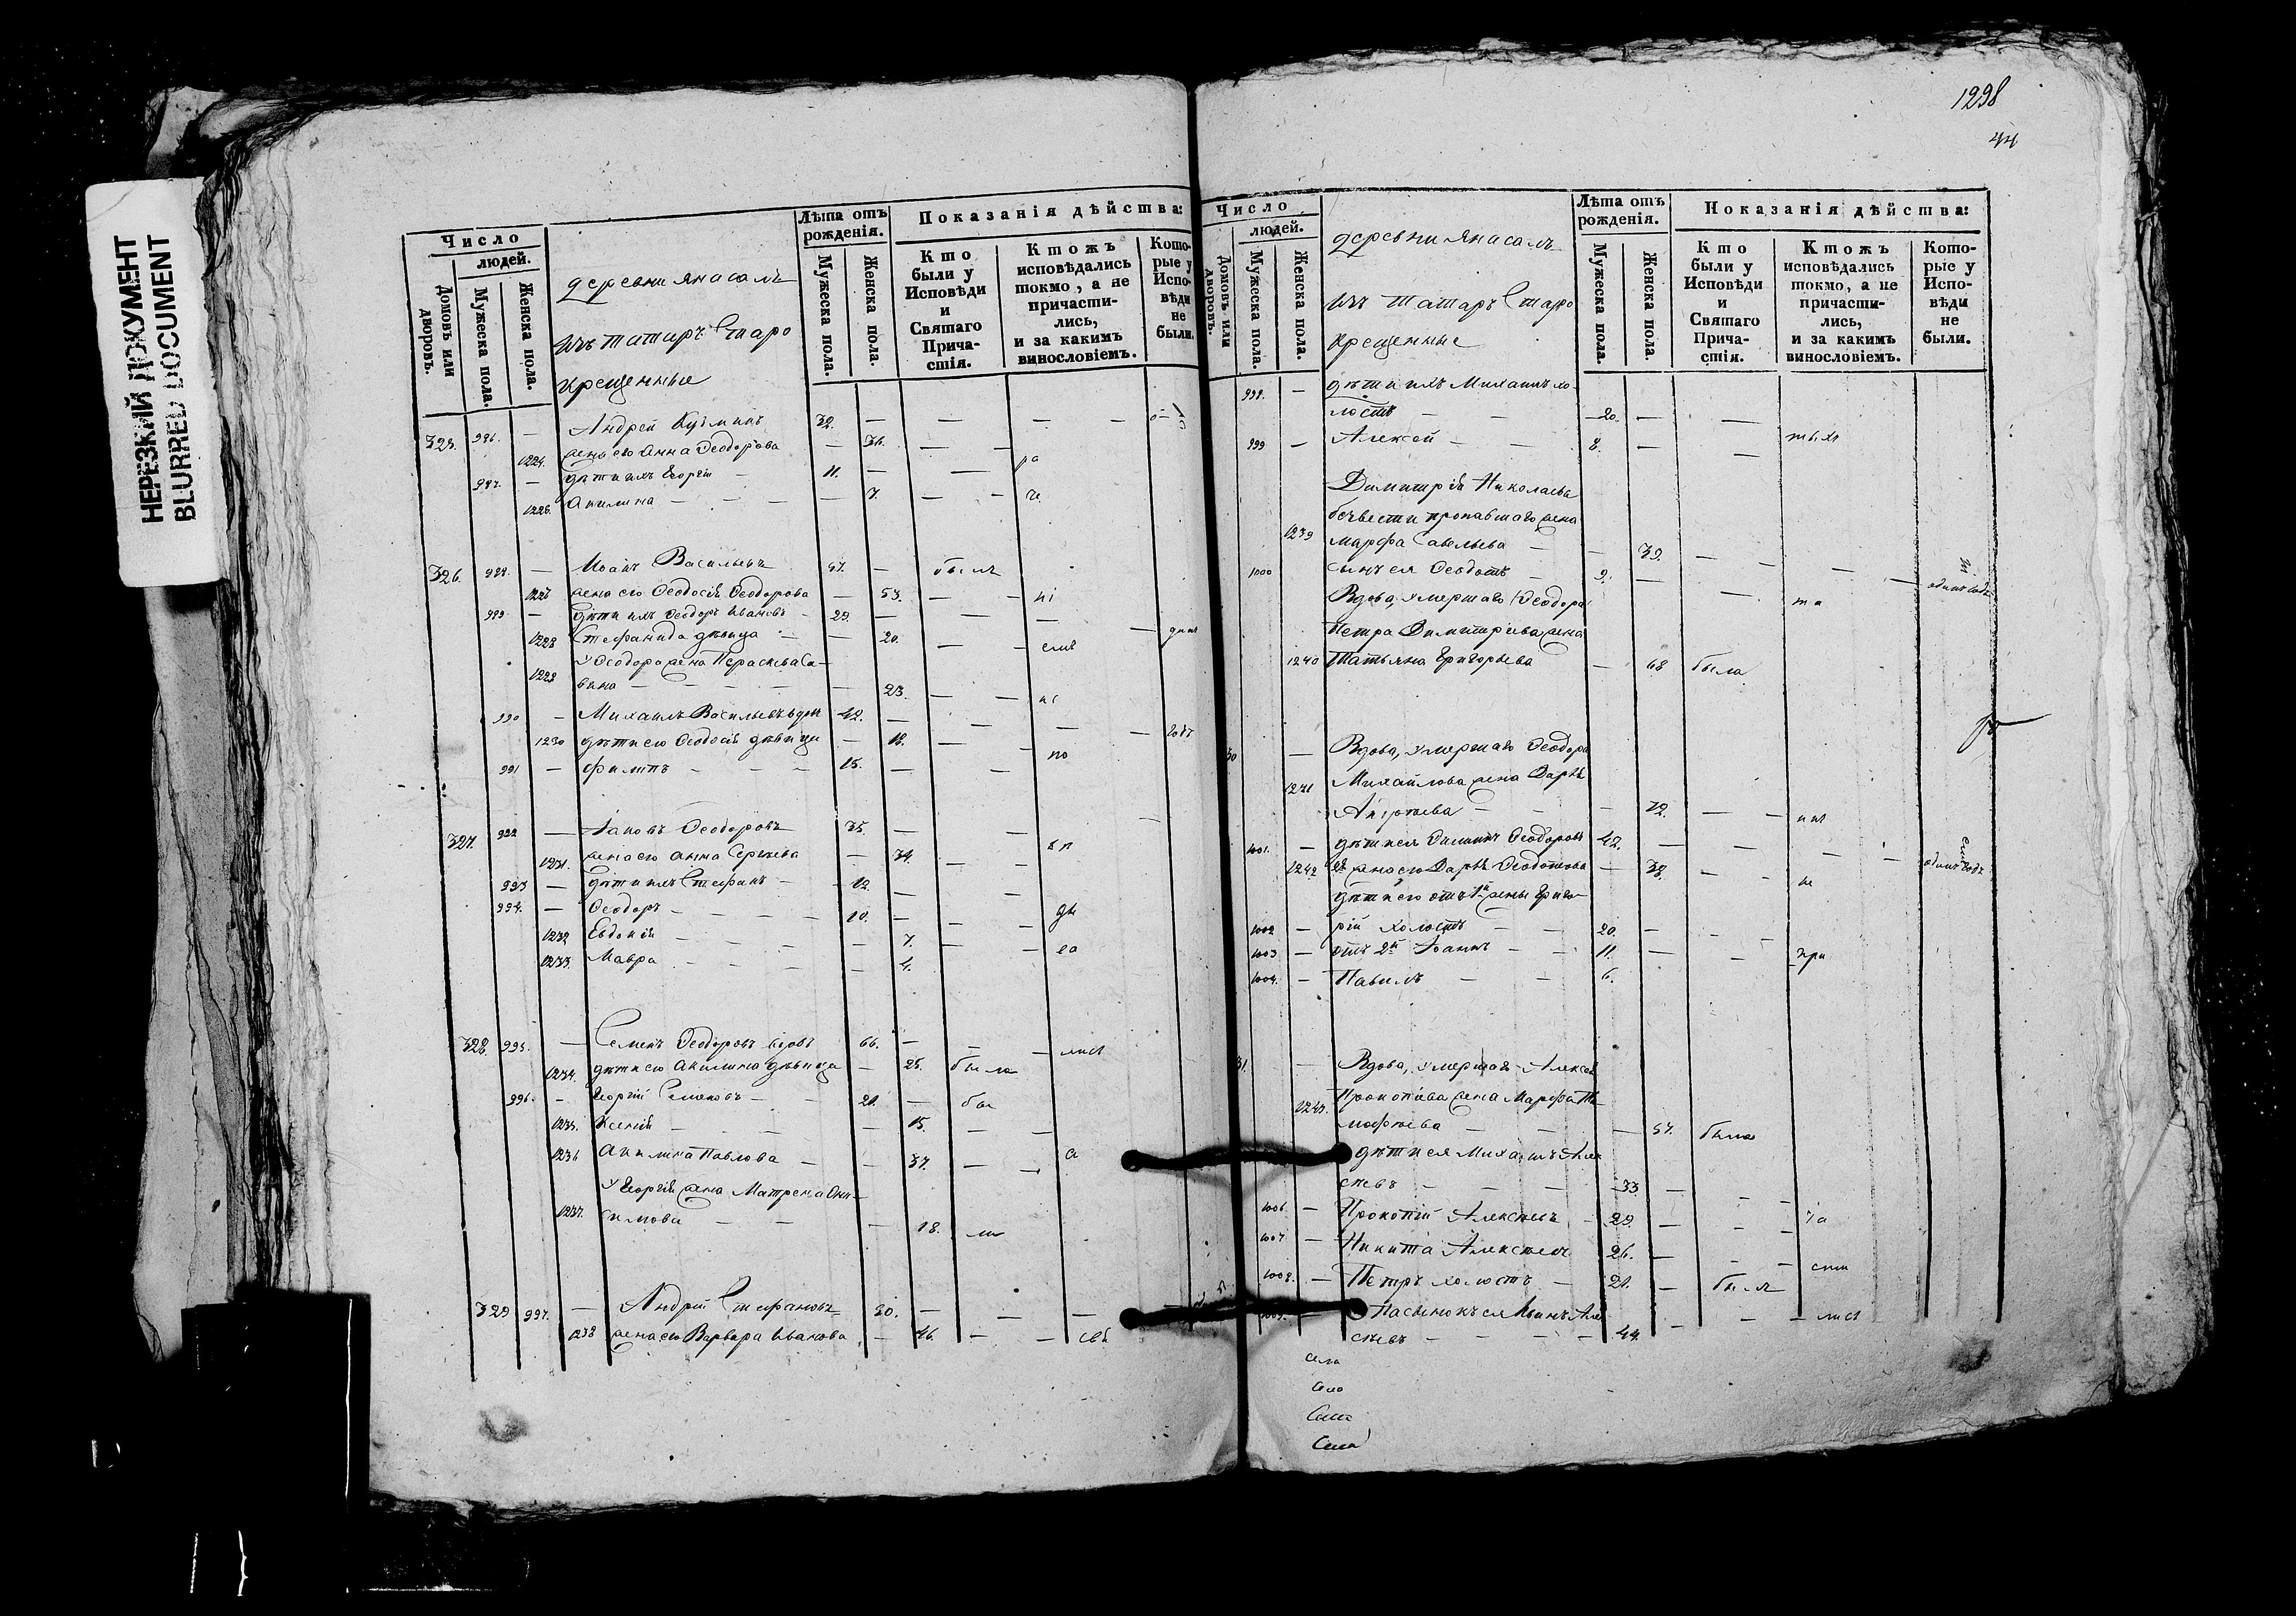 НЕРЕЗКИЙ ДОКУМЕНТ
BLURRED DOCUMENT
Число
людей.
Домовъ или дворовъ.
Мужеска пола.
Женска пола.
деревни Янасалъ
изъ татаръ Старо
крещенные
Лѣта отъ рожденія.
Мужеска пола.
Женска пола.
Показанія дѣйства:
Кто были у Исповѣди и Святаго Причастія.
Ктожъ исповѣдались токмо, а не причастились, и за какимъ винословіемъ.
Которые у Исповѣди не были.
325. 986. — Андрей Кузминъ 32. — — —
1224. жена его Анна Ѳеодорова — 36. — — ра
987. — дѣти ихъ Георгій — 11. —
1225. Акилина — — — 7. — — че
326. 988. — Иоанъ Васильевъ 57. — былъ
1226 жена его Ѳеодосія Ѳеодорова — 53. — — ні
989 — дѣти ихъ Ѳеодоръ Ивановъ — 29. — —
1228 Стефанида дѣвица — — 20. — — емъ — днии
1229 У Ѳеодора жена Параскева Са-
вина — — — — 23. — — не
990 — Михаилъ Васильевъ вдов 42. — — — — годъ
1230 дѣти его Ѳеодосія дѣвица — 18. — — по
991 — Филипъ — — — 15. — —
327. 992 — Іаковъ Ѳеодоровъ 35. — —
1231. жена его Анна Сергѣева — 34. — —
993 — дѣти ихъ Стефанъ — 12. — —
994. — Ѳеодоръ — — — — 10. — — — ди
1232 Евдокія — — — — 7. — — еа
1233. Мавра — — — — 4.
328. 995. — Семенъ Ѳеодоровъ вдовъ 66. — — — лись
1234. дѣти его Акилина дѣвица — 25. была
996. — Георгій Семеновъ — — 21. — бы
1235. Ксенія — — — 15. — —
1236 Акилина Павлова — — 37. — — а
У Георгія жена Матрена Они-
1237. симова — — — 18. ли
329 997. — Андрей Стефановъ 30. — — —
1238 жена его Варвара Иванова — 46. — — свѣ
1298
44
Число
людей.
Домовъ или дворовъ.
Мужеска пола.
Женска пола.
деревни Янасалъ
изъ татаръ Старо
крещенные
Лѣта отъ рожденія.
Мужеска пола.
Женска пола.
Показанія дѣйства:
Кто были у Исповѣди и Святаго Причастія.
Ктожъ исповѣдались токмо, а не причастились, и за какимъ винословіемъ.
Которые у Исповѣди не были.
998. — дѣти ихъ Михаилъ хо-
лостъ — — 20. — —
999 — Алексѣй — — 8. — —
Димитрія Николаева
безвести пропавшаго жена
1239 Марфа Савельева — — 39. — — —
1000 сынъ ея Ѳеодотъ — 9. — — та одинъ годъ
Вдова, умершаго Ѳеодора
Петра Димитріева жена
1240 Татьяна Григорьева — 68 была
30 — Вдова, умершаго Ѳеодора
1241 Михайлова жена Дарья
Андреева — — — 72. — — ни
1001. — дѣти ея Ѳеодоровъ 42. — — — — одинъ годъ
1242 2я жена его Дарья Ѳеодотова — 38. — — не
дѣти его отъ 1й жены Григо-
1002 — рій холостъ — — 20. — —
1003 — отъ 2й Іоаннъ — — 11. — — при
1004. — Павелъ — — 6.
31. — Вдова, умершаго Алексѣя
1243. Прокопіева жена Марфа Ти-
мофѣева — — — — 57. была
дѣти ея Михаилъ Але
сѣевъ — — — 33. — — —
1006. — Прокопій Алексѣевъ — 29. — — — ча
1007 — Никита Алексѣевъ 26. — — — сти
1008. — Петръ холостъ — 21. — былъ
1009. — Пасынокъ ея Иванъ Але
сѣевъ — — — — 44. — — — лись